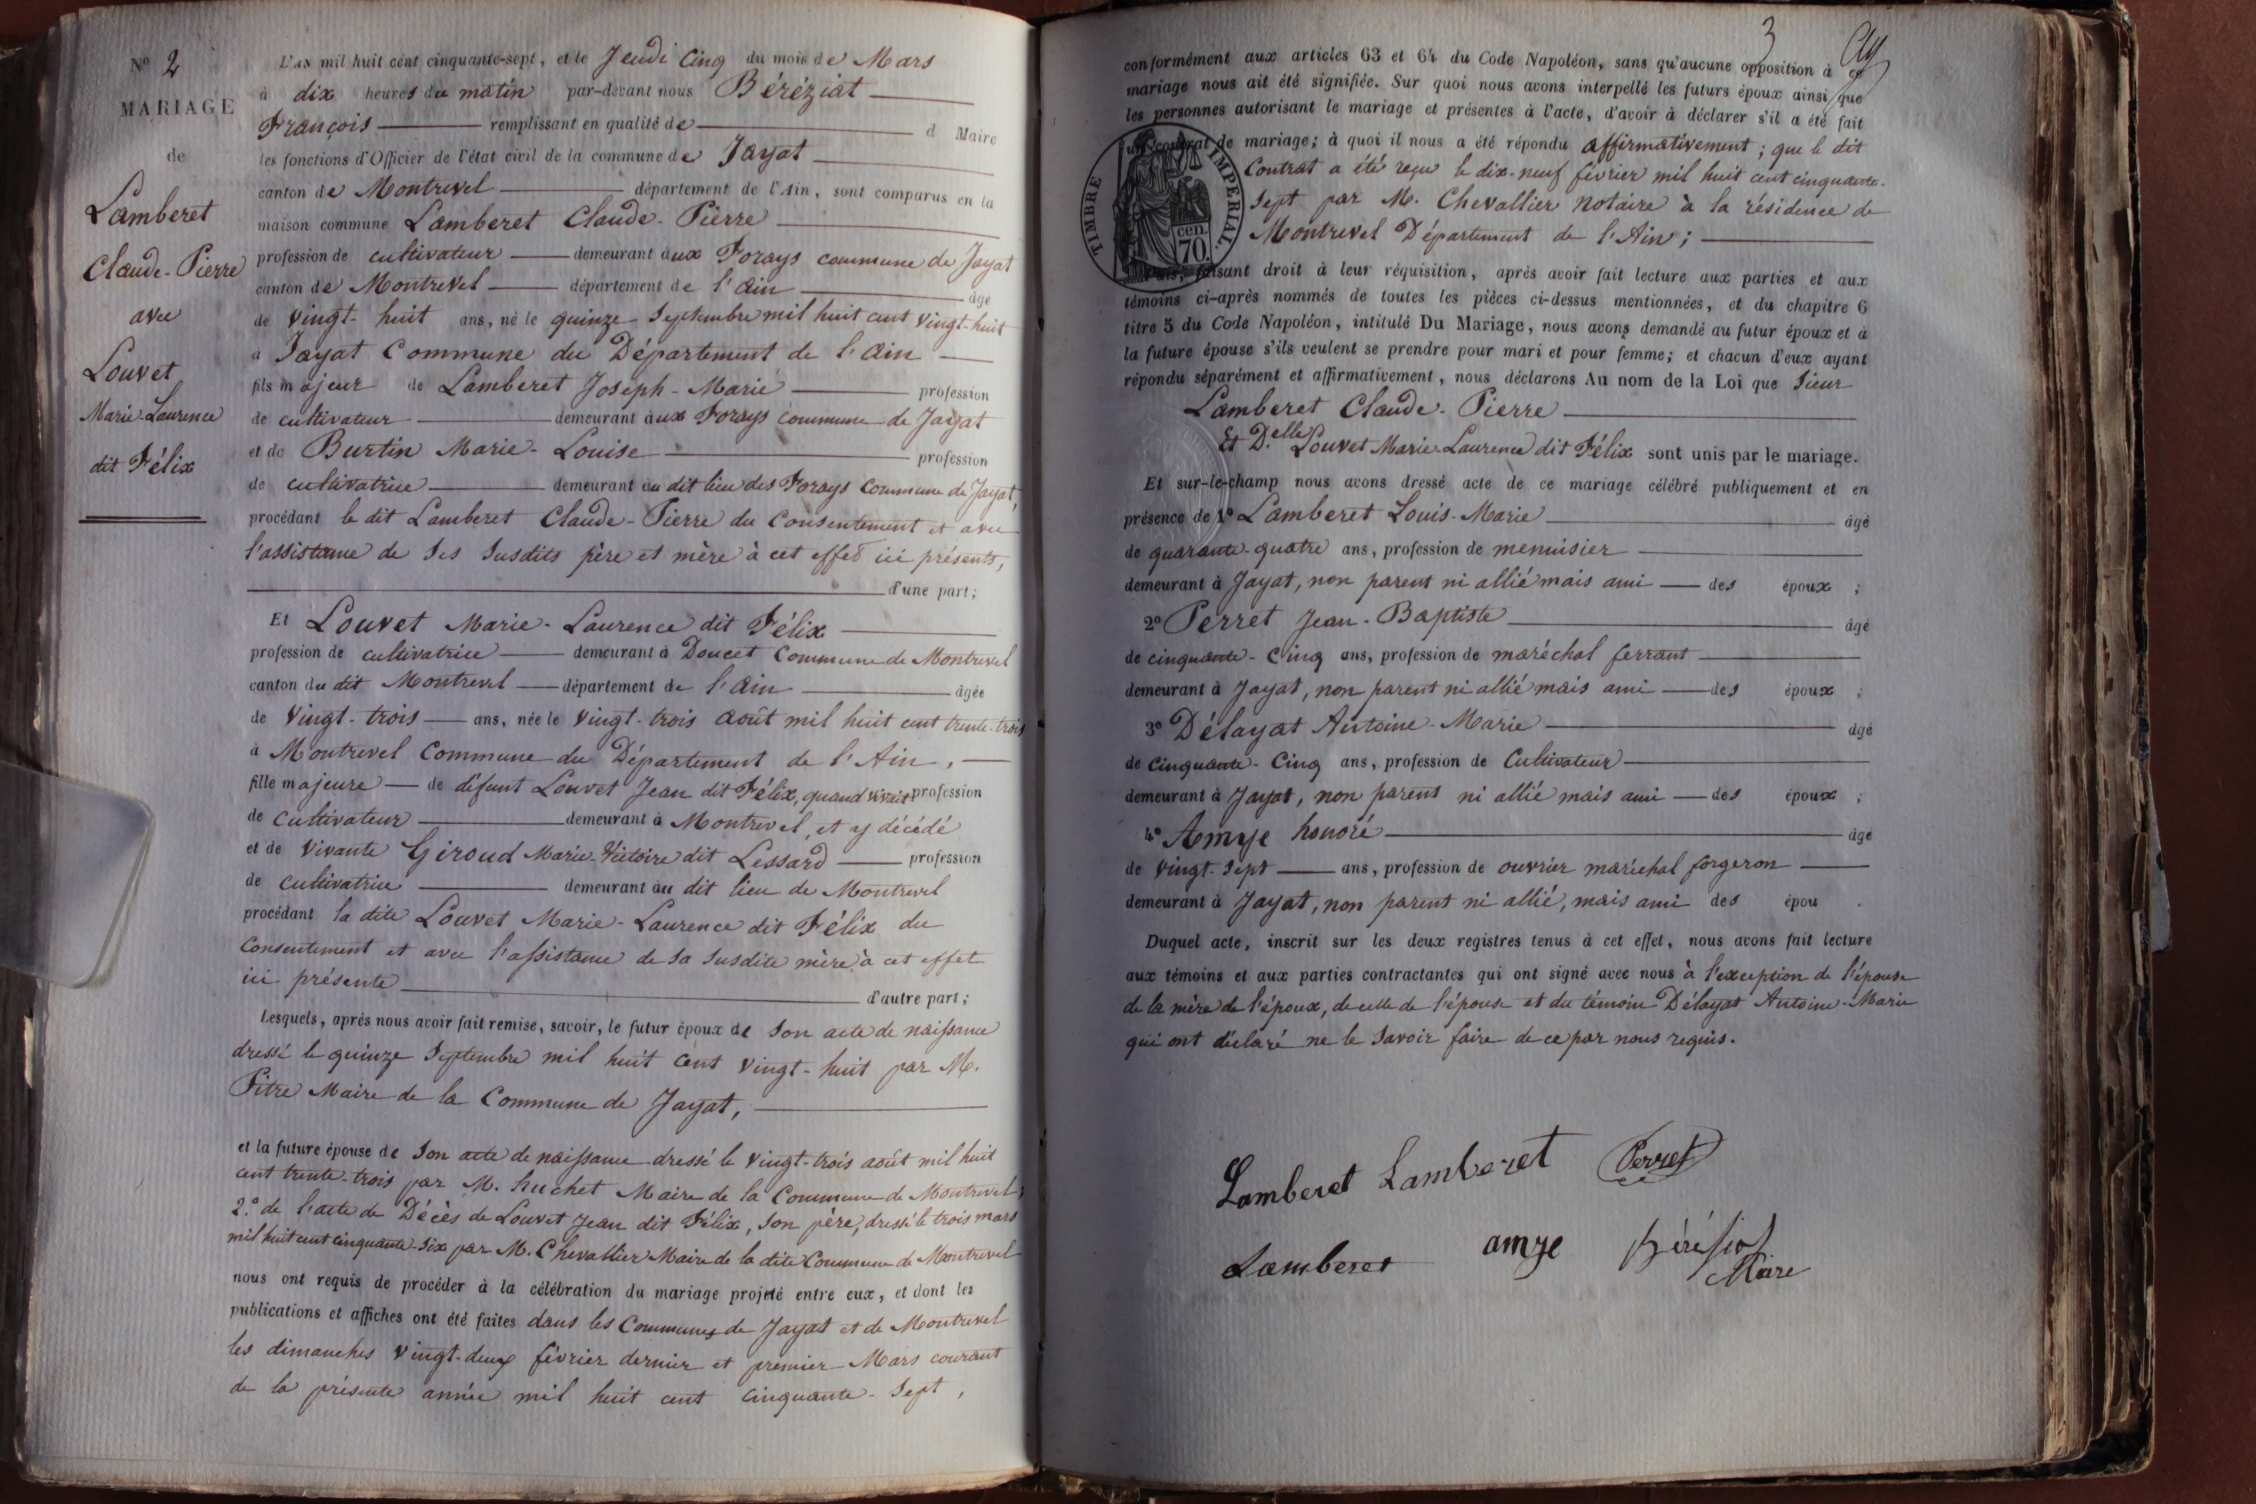 Nº 2
MARIAGE
de
Lamberet
Claude-Pierre
avec
Louvet
Marie-Laurence
dit Félix
L'an mil huit cent cinquante-sept, et le Jeudi Cinq du mois de Mars
à dix heures du matin par-devant nous Béréziat
François remplissant en qualité de d Maire
les fonctions d'Officier de l'état civil de la commune de Jayat
canton de Montrevel département de l'Ain, sont comparus en la
maison commune Lamberet Claude-Pierre
profession de cultivateur demeurant aux Forays commune de Jayat
canton de Montrevel département de l'Ain âgé
de vingt-huit ans, né le quinze Septembre mil huit cent vingt-huit
à Jayat Commune du Département de l'Ain
fils majeur de Lamberet Joseph-Marie profession
de cultivateur demeurant aux Forays commune de Jayat
et de Burtin Marie-Louise profession
de cultivatrice demeurant au dit lieu des Forays Commune de Jayat,
procédant le dit Lamberet Claude-Pierre du Consentement et avec
l'assistance de Ses Susdits père et mère à cet effet ici présents,
d'une part;
Et Louvet Marie-Laurence dit Félix
profession de cultivatrice demeurant à Doucet Commune de Montrevel
canton du dit Montrevel département de l'Ain âgée
de Vingt-trois ans, née le Vingt-trois août mil huit cent trente-trois
à Montrevel Commune du Département de l'Ain,
fille majeure de défunt Louvet Jean dit Félix, quand vivait profession
de Cultivateur demeurant à Montrevel, et y décédé
et de Vivante Giroud Marie-Victoire dit Lessard profession
de Cultivatrice demeurant au dit lieu de Montrevel
procédant la dite Louvet Marie-Laurence dit Félix du
Consentement et avec l'assistance de Sa Susdite mère à cet effet
ici présente d'autre part;
Lesquels, après nous avoir fait remise, savoir, le futur époux de Son acte de naissance
dressé le quinze Septembre mil huit Cent Vingt-huit par M.
Pitre Maire de la Commune de Jayat,
et la future épouse de Son acte de naissance dressé le Vingt-trois août mil huit
cent trente-trois par M. huchet Maire de la Commune de Montrevel;
2.º de l'acte de Décès de Louvet Jean dit Félix, Son père, dressé le trois mars
mil huit cent cinquante-Six par M. Chevallier Maire de la dite Commune de Montrevel
nous ont requis de procéder à la célébration du mariage projeté entre eux, et dont les
publications et affiches ont été faites dans les Communes de Jayat et de Montrevel
les dimanches Vingt-deux février dernier et premier Mars courant
de la présente année mil huit cent cinquante-Sept,
3
conformément aux articles 63 et 64 du Code Napoléon, sans qu'aucune opposition à ce
mariage nous ait été signifiée. Sur quoi nous avons interpellé les futurs époux ainsi que
les personnes autorisant le mariage et présentes à l'acte, d'avoir à déclarer s'il a été fait
un contrat de mariage; à quoi il nous a été répondu affirmativement; que le dit
Contrat a été reçu le dix-neuf février mil huit cent cinquante-
Sept par M. Chevallier Notaire à la résidence de
Montrevel Département de l'Ain;
TIMBRE IMPÉRIAL.
cen.
70.
faisant droit à leur réquisition, après avoir fait lecture aux parties et aux
témoins ci-après nommés de toutes les pièces ci-dessus mentionnées, et du chapitre 6
titre 5 du Code Napoléon, intitulé Du Mariage, nous avons demandé au futur époux et à
la future épouse s'ils veulent se prendre pour mari et pour femme; et chacun d'eux ayant
répondu séparément et affirmativement, nous déclarons Au nom de la Loi que Sieur
Lamberet Claude-Pierre
Et D.elle Louvet Marie-Laurence dit Félix sont unis par le mariage.
Et sur-le-champ nous avons dressé acte de ce mariage célébré publiquement et en
présence de 1º Lamberet Louis-Marie âgé
de quarante-quatre ans, profession de menuisier
demeurant à Jayat, non parent ni allié mais ami des époux ;
2º Perret Jean-Baptiste âgé
de cinquante-Cinq ans, profession de maréchal ferrant
demeurant à Jayat, non parent ni allié mais ami des époux ;
3º Délayat Antoine-Marie âgé
de Cinquante-Cinq ans, profession de Cultivateur
demeurant à Jayat, non parent ni allié mais ami des époux ;
4º Amye honoré âgé
de Vingt-Sept ans, profession de ouvrier maréchal forgeron
demeurant à Jayat, non parent ni allié, mais ami des épou .
Duquel acte, inscrit sur les deux registres tenus à cet effet, nous avons fait lecture
aux témoins et aux parties contractantes qui ont signé avec nous à l'exception de l'épouse
de la mère de l'époux, de celle de l'épouse et du témoin Délayat Antoine-Marie
qui ont déclaré ne le Savoir faire de ce par nous requis.
Lamberet Lamberet Perret
Lamberet amye Béréziat
Maire